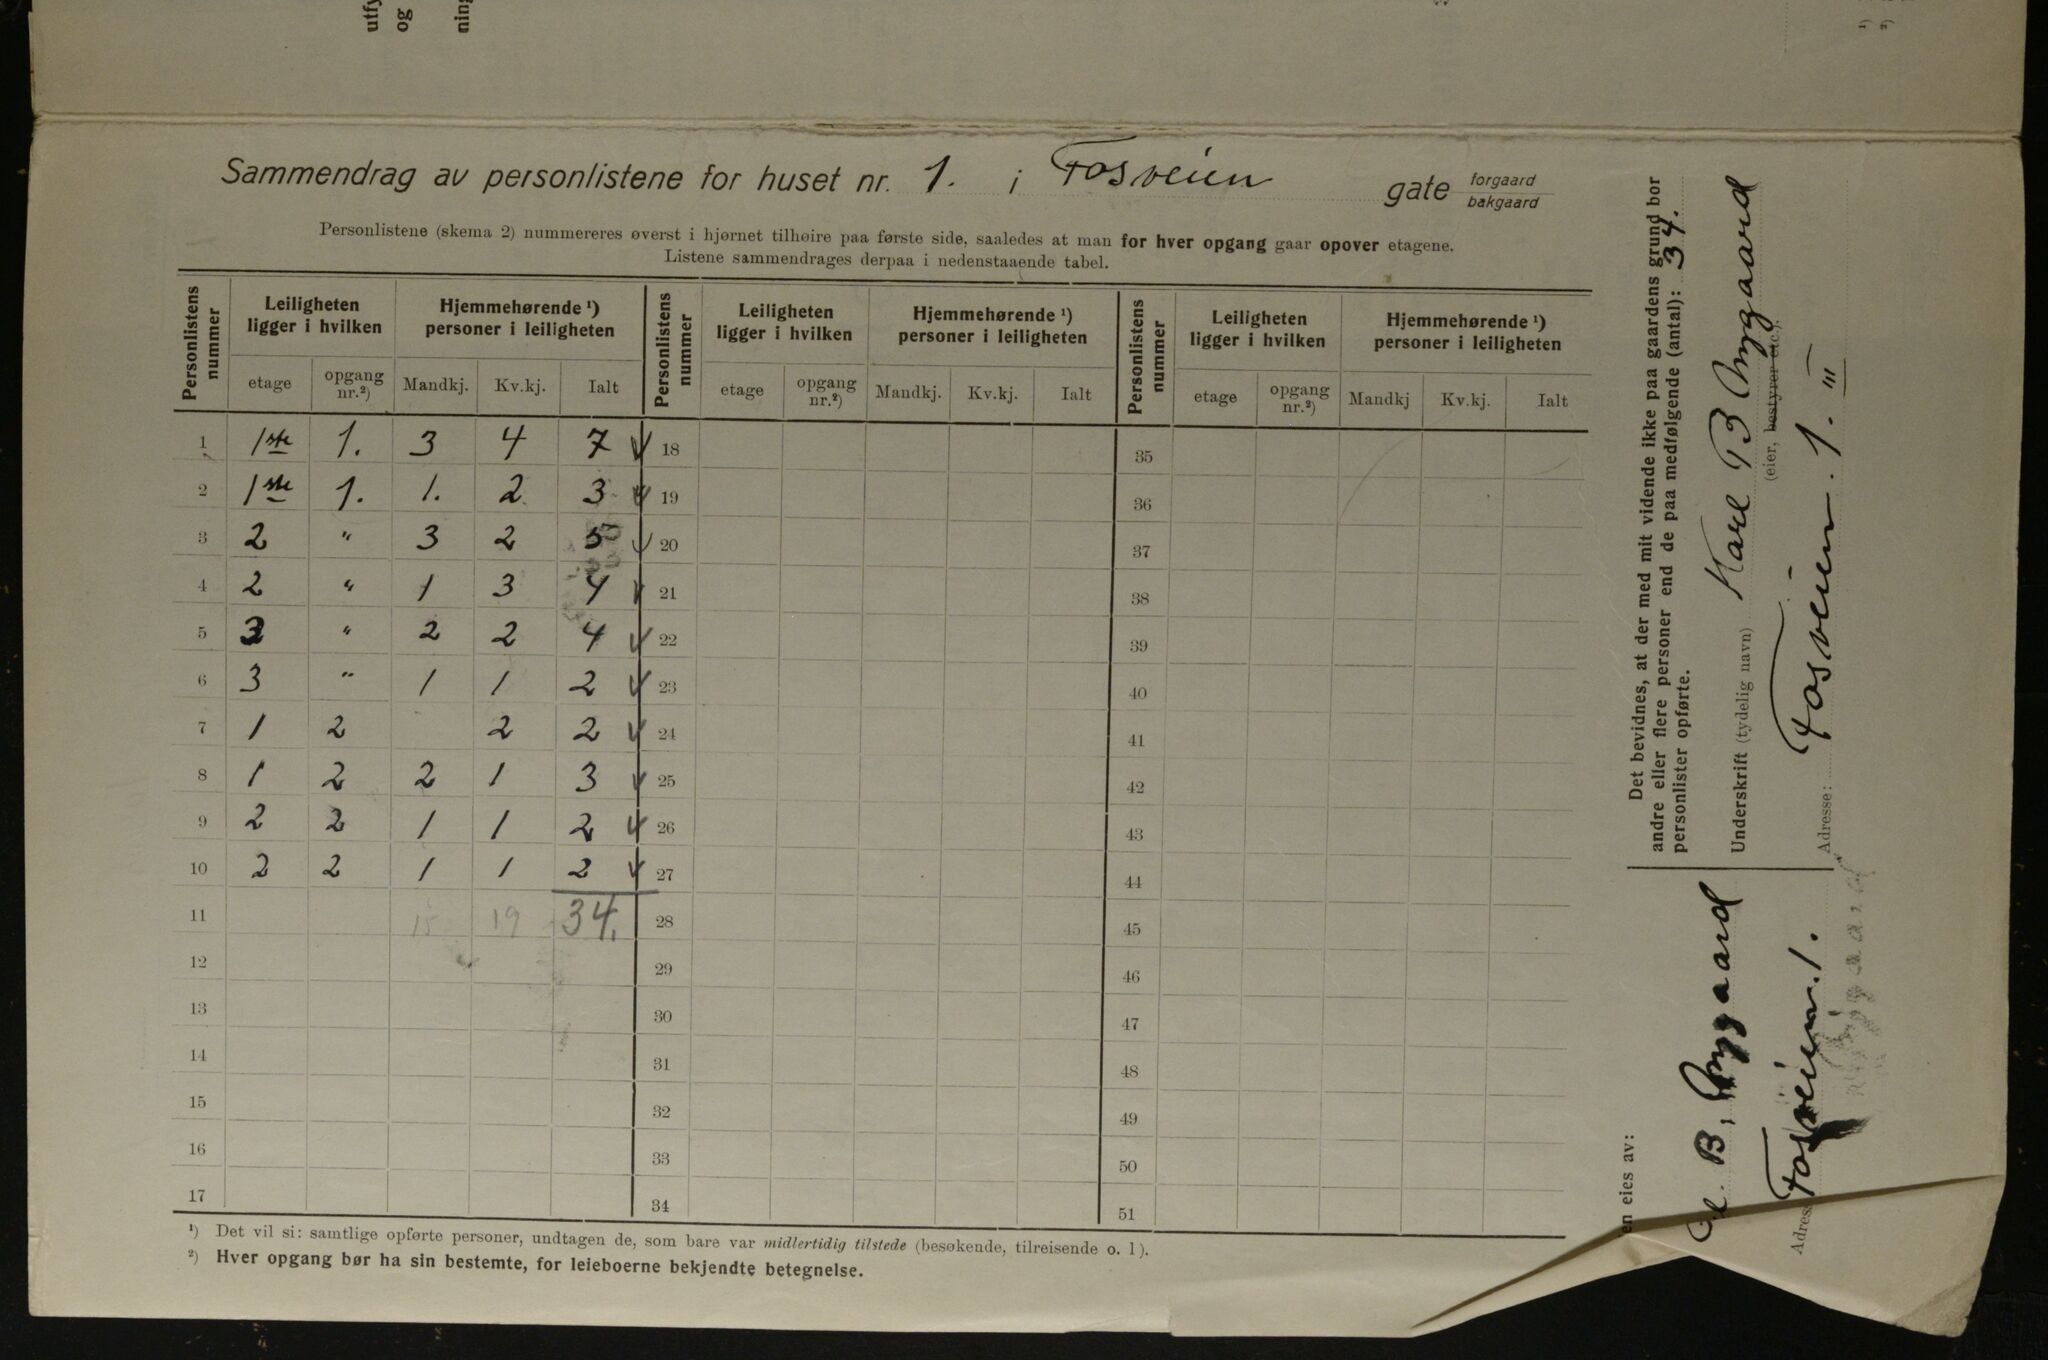 Sammendrag av personlistene for huset nr. 1. i Fosveien gate forgaard bakgaard
Personlistene (skema 2) nummereres øverst i hjørnet tilhøire paa første side, saaledes at man for hver opgang gaar opover etagene.
Listene sammendrages derpaa i nedenstaaende tabel.
Personlistens nummer Leiligheten ligger i hvilken Hjemmehørende ¹) personer i leiligheten Personlistens nummer Leiligheten ligger i hvilken Hjemmehørende ¹) personer i leiligheten Personlistens nummer Leiligheten ligger i hvilken Hjemmehørende ¹) personer i leiligheten
etage opgang nr.²) Mandkj. Kv.kj. Ialt etage opgang nr.²) Mandkj. Kv.kj. Ialt etage opgang nr.²) Mandkj Kv.kj. Ialt
1 1ste 1. 3 4 7 18 35
2 1ste 1. 1. 2 3 19 36
3 2 " 3 2 5 20 37
4 2 " 1 3 4 21 38
5 3 " 2 2 4 22 39
6 3 " 1 1 2 23 40
7 1 2 2 2 24 41
8 1 2 2 1 3 25 42
9 2 2 1 1 2 26 43
10 2 2 1 1 2 27 44
11 15 19 34. 28 45
12 29 46
13 30 47
14 31 48
15 32 49
16 33 50
17 34 51
¹) Det vil si: samtlige opførte personer, undtagen de, som bare var midlertidig tilstede (besøkende, tilreisende o. l).
²) Hver opgang bør ha sin bestemte, for leieboerne bekjendte betegnelse.
Det bevidnes, at der med mit vidende ikke paa gaardens grund bor
andre eller flere personer end de paa medfølgende (antal): 34.
personlister opførte.
Underskrift (tydelig navn) Karl B Nygaard
(eier, bestyrer etc).
Adresse: Fosveien. 1. III
en eies av:
B. Nygaard
Adress Fosveien. 1.